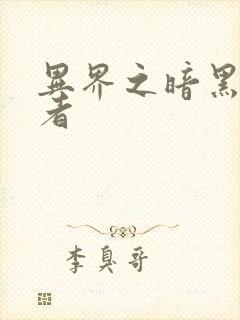 異界之暗黑
者
李臭哥